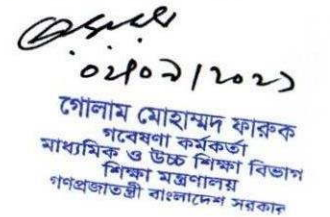 ০২/০৯/২০২১
গোলাম মোহাম্মদ ফারুক
গবেষণা কর্মকর্তা
মাধ্যমিক ও উচ্চ শিক্ষা বিভাগ
শিক্ষা মন্ত্রণালয়
গণপ্রজাতন্ত্রী বাংলাদেশ সরকার